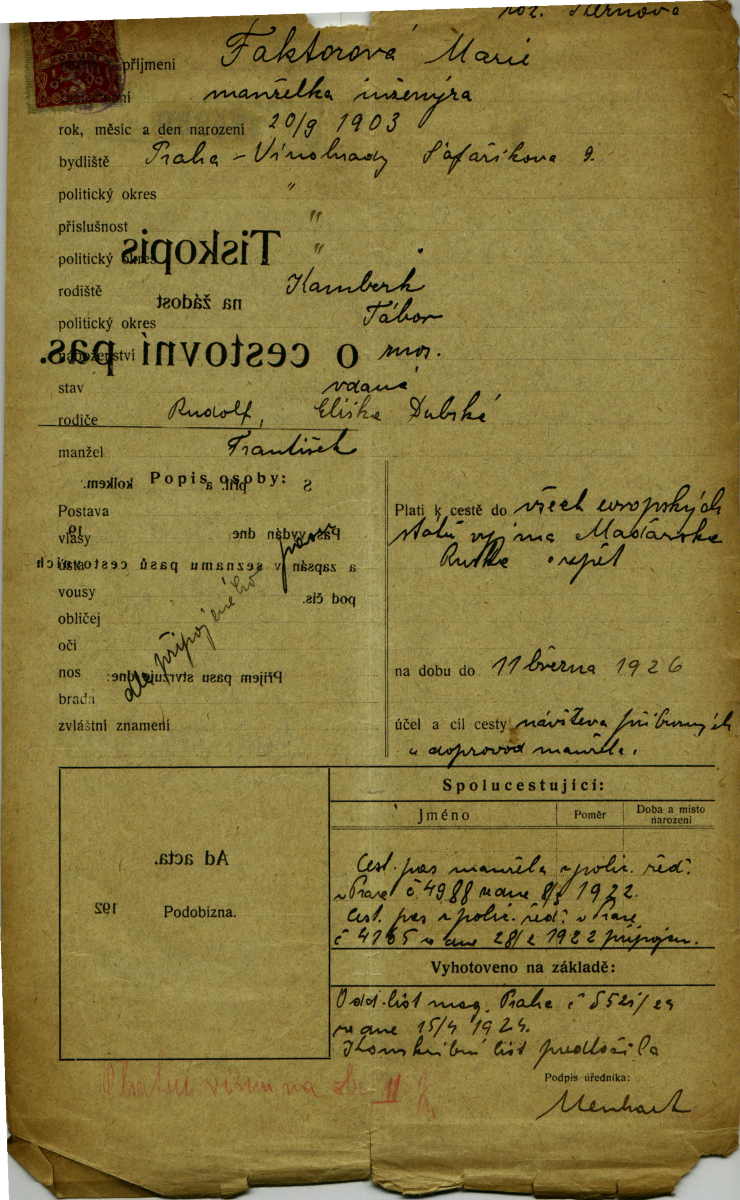 roz.
příjmení Faktorová Marie
manželka inženýra
rok, měsíc a den narození 20/9 1903
bydliště Praha - Vinohrady Šafaříkova 9.
politický okres "
příslušnost "
politický okres "
rodiště Kamberk
politický okres Tábor
náboženství moz.
stav vdaná
rodiče Rudolf, Eliška Dubská
manžel František
Tiskopis
na žádost
o cestovní pas.
Popis osoby:
Postava
vlasy
ústa
vousy
obličej
oči
nos
brada
zvláštní znamení
dle připojeného pasu
S příl. a kolkem.
Pas vydán dne 19
a zapsán v seznamu pasů cestovních
pod čís.
Příjem pasu stvrzuje dne:
Platí k cestě do všech evropských
států vyjma Maďarska
Ruska a zpět
na dobu do 11 března 1926
účel a cíl cesty návštěva příbuzných
a doprovod manžela.
Ad acta.
192
Podobizna.
Spolucestující:
Jméno Poměr Doba a místo narození
Cest. pas manžela z polic. řed.
v Praze č 4988 ze dne 1922.
Cest. pas z polic. řed. v Praze
č 4165 ze dne 28/2 1922 připojen.
Vyhotoveno na základě:
Odd. list mag. Praha č
ze dne 15/4 1924.
Konskribční list předložila
Podpis úředníka:
Menhart